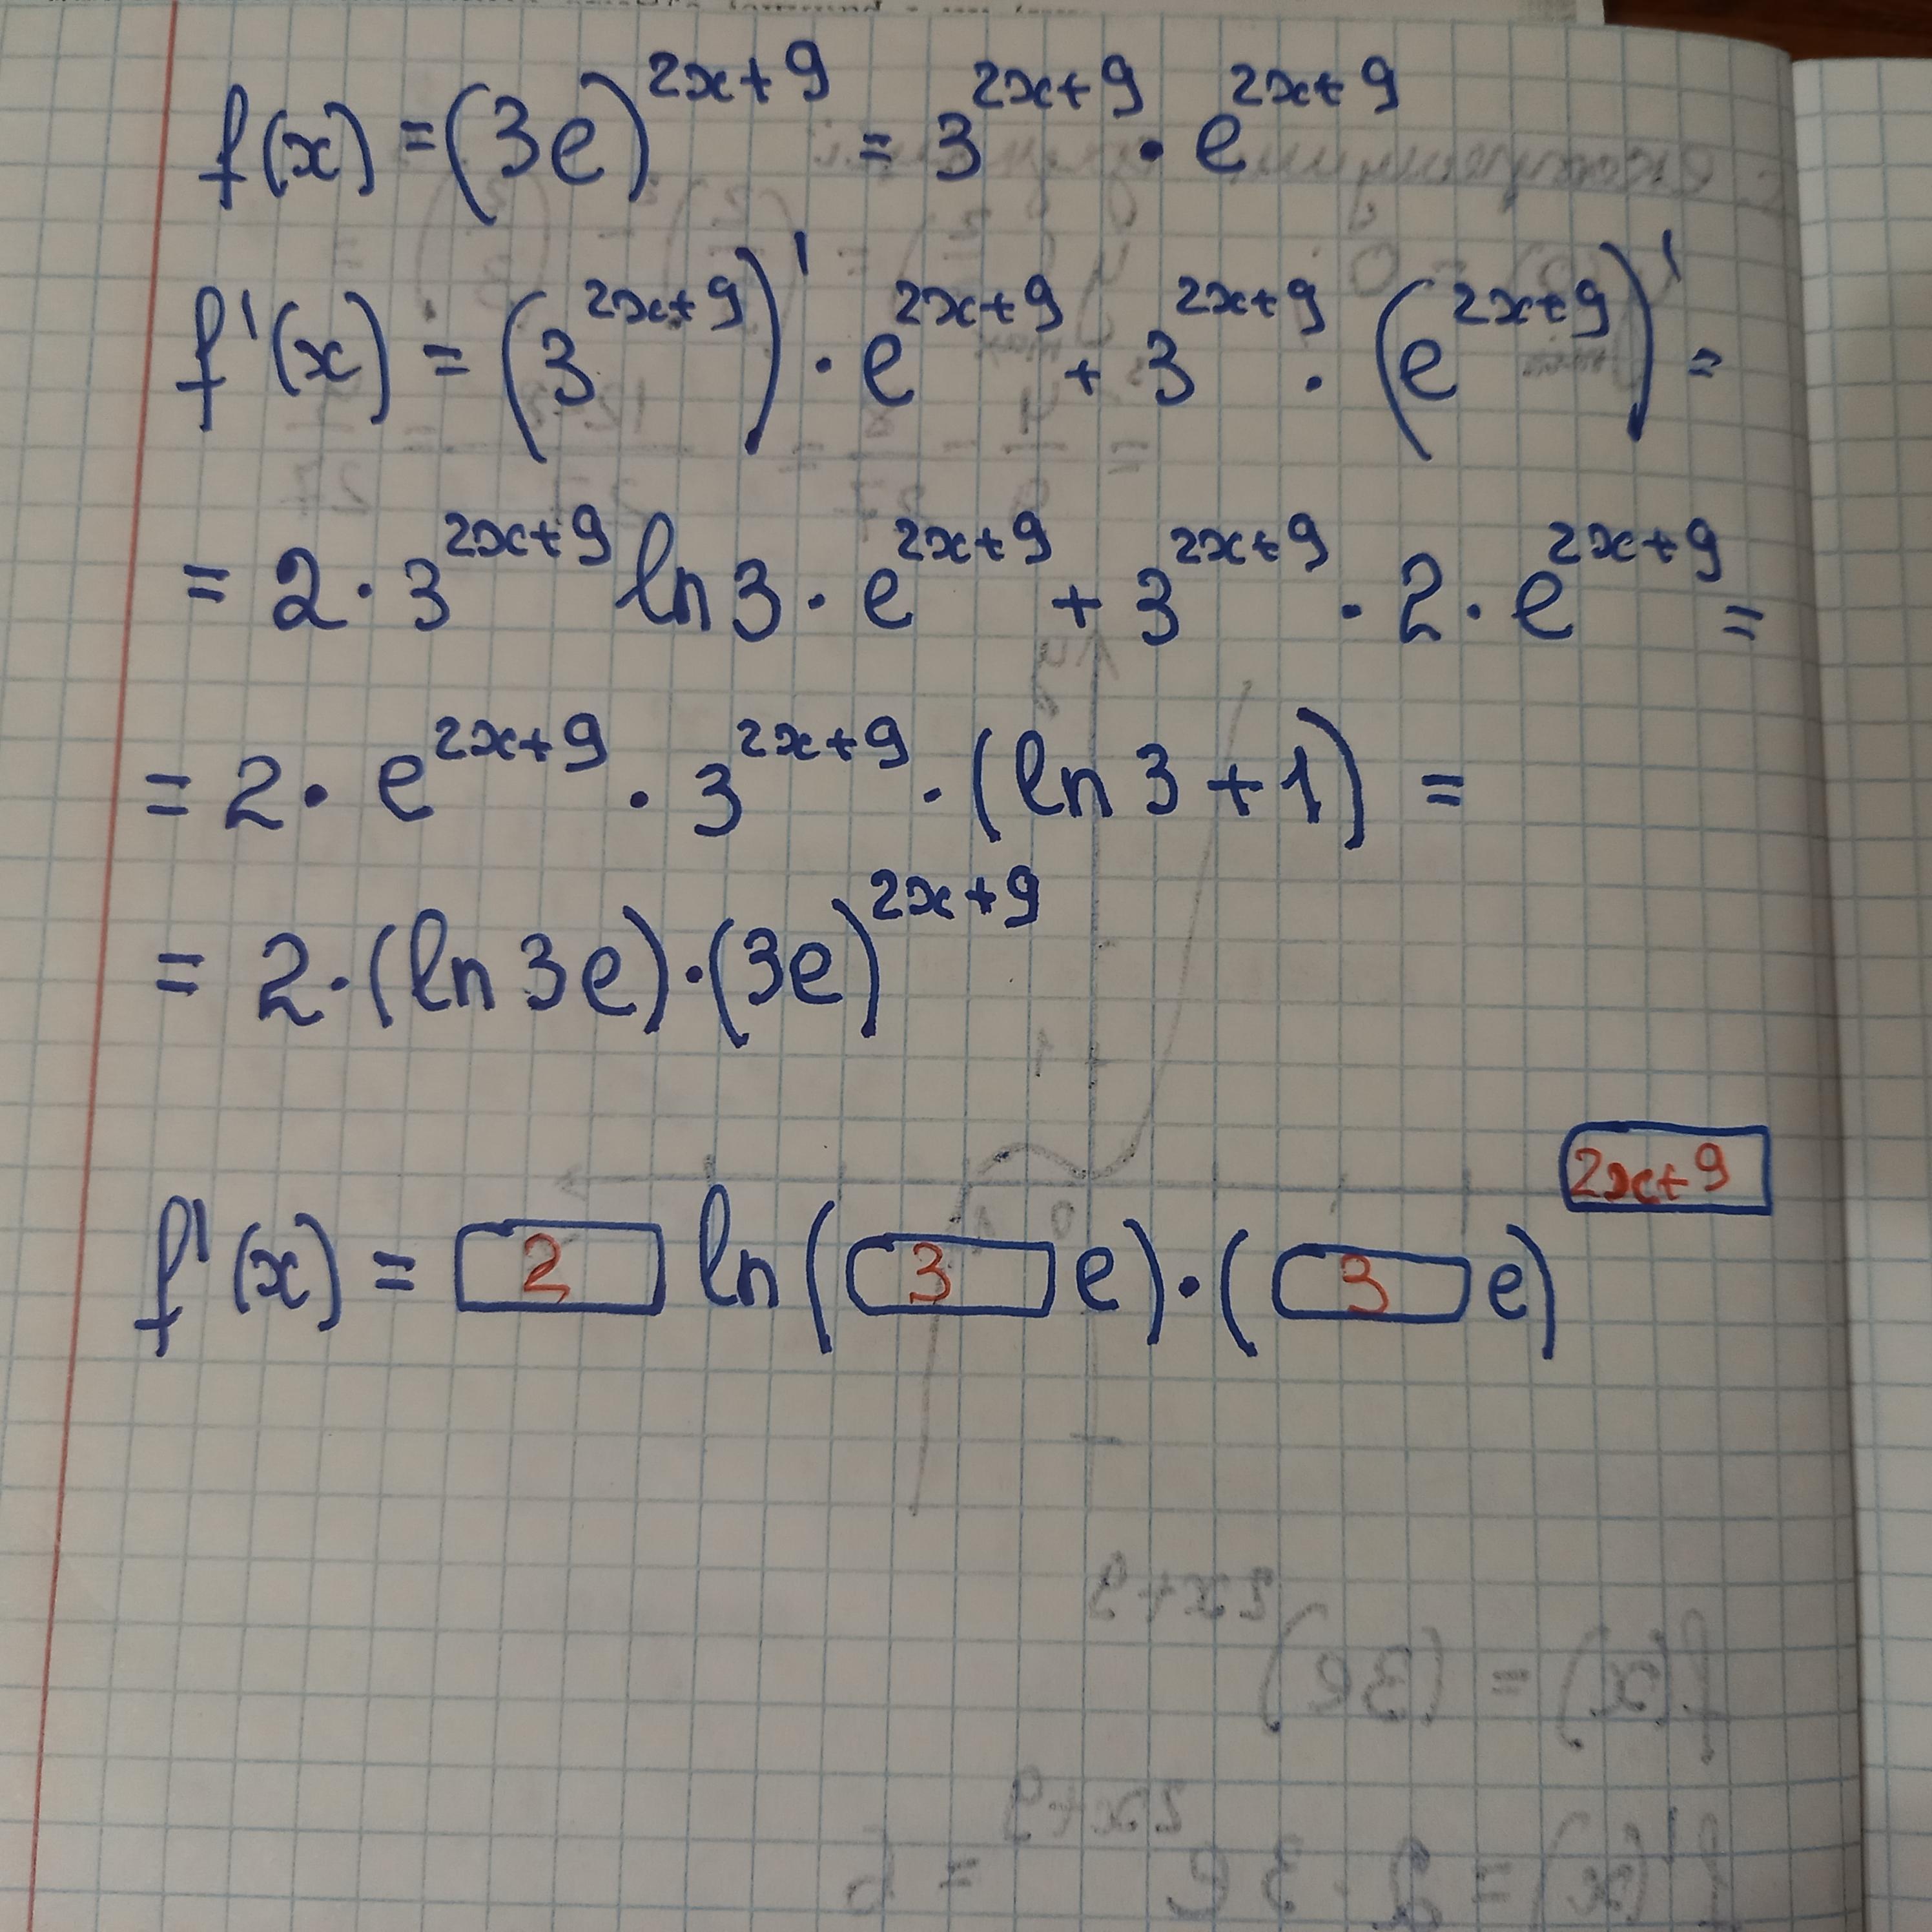 f(x) = (3e)^{2x+9} = 3^{2x+9} · e^{2x+9}
f'(x) = (3^{2x+9})' · e^{2x+9} + 3^{2x+9} · (e^{2x+9})' =
= 2 · 3^{2x+9} ln 3 · e^{2x+9} + 3^{2x+9} · 2 · e^{2x+9} =
= 2 · e^{2x+9} · 3^{2x+9} · (ln 3 + 1) =
= 2 · (ln 3e) · (3e)^{2x+9}
f'(x) = 2 ln(3 e) · (3 e)^{2x+9}